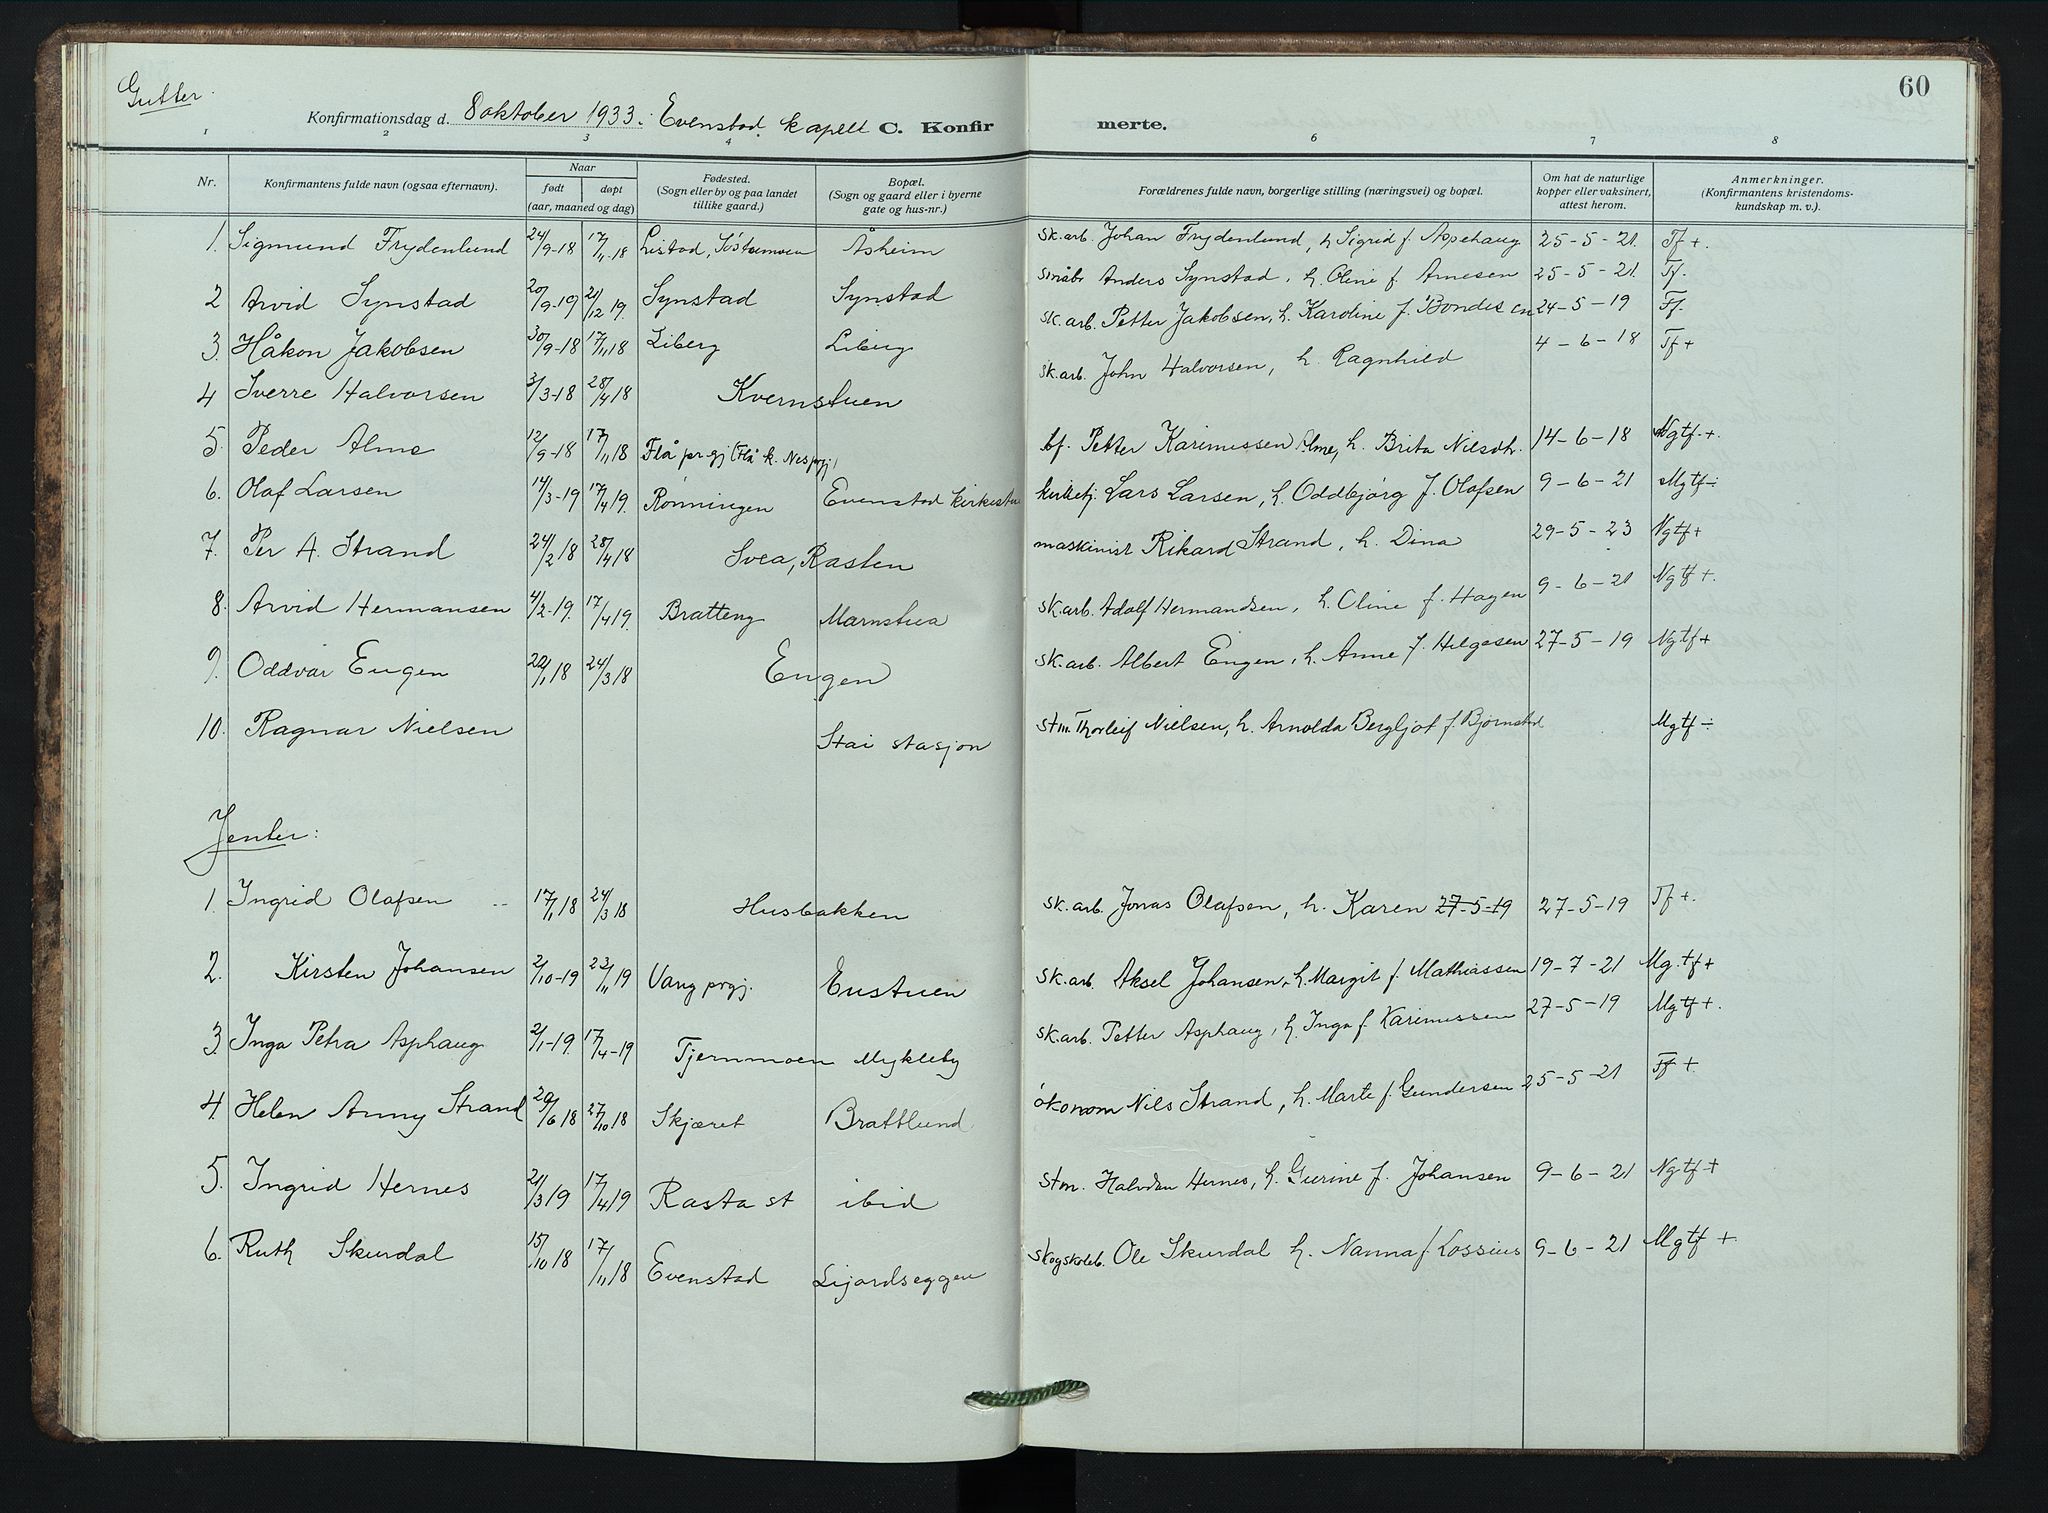 60
Gutter.
Konfirmationsdag d. 8 oktober 1933. Evenstad kapell C. Konfirmerte.
1 2 3 4 6 7 8
Nr. Konfirmantens fulde navn (ogsaa efternavn). Naar født døpt (aar, maaned og dag) Fødested. (Sogn eller by og paa landet tillike gaard.) Bopæl. (Sogn og gaard eller i byerne gate og hus-nr.) Forældrenes fulde navn, borgerlige stilling (næringsvei) og bopæl. Om hat de naturlige kopper eller vaksinert, attest herom. Anmerkninger. (Konfirmantens kristendomskundskap m. v.).
1. Sigmund Frydenlund 24/9-18 17/11-18 Listad, Åsheim sk.arb. Johan Frydenlund, h. Sigrid f. Aspehaug 25-5-21. Tf +.
2 Arvid Synstad 20/9-19 21/12 19. Synstad Synstad småbr Anders Synstad, h. Oline f. Arnesen 25-5-21. Tf.
3. Håkon Jakobsen 30/9-18 17/11 18 Liberg Liberg sk.arb. Petter Jakobsen, h. Karoline f. Bondesen 24-5-19 Tf.
4 Sverre Halvorsen 3/3-18 28/4 18 Kvernstuen sk.arb. John Halvorsen, h. Ragnhild 4-6-18 Tf +
5. Peder Alme 12/9-18 17/11 18 Flå prgj (Flå k. Nes prgj) bf. Petter Karinussen Alme, h. Brita Nilsdtr. 14-6-18 Ngtf +.
6. Olaf Larsen 14/3-19 17/4 19. Rønningen Evenstad kirkestu kirketj. Lars Larsen, h. Oddbjørg J. Olafsen 9-6-21 Mgtf ÷
7. Per A. Strand 24/2 18 28/4 18 Svea, Rasten maskinist Rikard Strand, h. Dina 29-5-23 Ngtf +
8. Arvid Hermansen 4/2-19. 17/4 19. Bratteng Marnstua sk.arb. Adolf Hermandsen, h. Oline f. Hagen 9-6-21 Ngtf +.
9. Oddvar Engen 20/1 18 24/3 18 Engen sk.arb. Albert Engen, h. Anne f. Helgesen 27-5-19 Ngtf +
10. Ragnar Nielsen Stai stasjon stm. Thorleif Nielsen, h. Arnolda Bergljot f. Bjørnstad Mgtf ÷
Jenter:
1. Ingrid Olafsen 17/1 18 24/3 18 Husbakken sk.arb. Jonas Olafsen, h. Karen 27-5-19 27-5-19 Tf +.
2. Kirsten Johansen 2/10-19 23/11 19 Vang prgj. Enstuen sk.arb. Aksel Johansen, h. Margit f. Mathiassen 19-7-21 Mg.tf +
3. Inga Petra Asphaug 2/1-19. 17/4-19 Tjernmoen Mykleby sk.arb. Petter Asphaug, h. Inga f. Karinussen 27-5-19 Mgtf +.
4. Helen Anny Strand 20/6 18 27/10 18 Skjæret Brattlund økonom Nils Strand, h. Marte f. Gundersen 25-5-21 Tf +
5. Ingrid Hernes 21/3 19 17/4 19 Rasta st ibid stm. Halvdan Hernes, h. Gurine f. Johansen 9-6-21 Ngtf +
6. Ruth Skurdal 15/10 18 17/11 18 Evenstad Lijordseggen skogskoleb. Ole Skurdal h. Nanna f. Lossius 9-6-21 Mgtf +